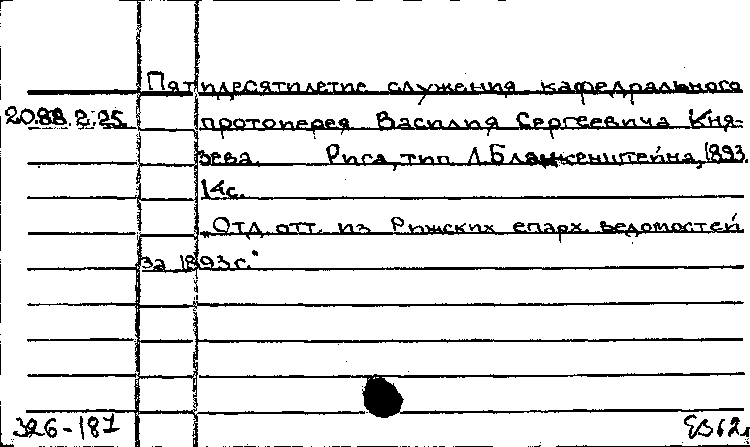 Пятидесятилетие служения кафедрального
20.88.2.25 протоиерея Василия Сергеевича Кня-
зева. Рига, тип Л.Бланкенштейна, 1893.
14с.
„Отд. отт. из Рижских епарх. ведомостей
за 1893 г."
326-187